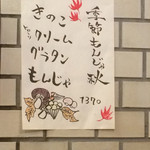 季節もんじゃ 秋
きのこ
クリーム
グラタン
もんじゃ
1370